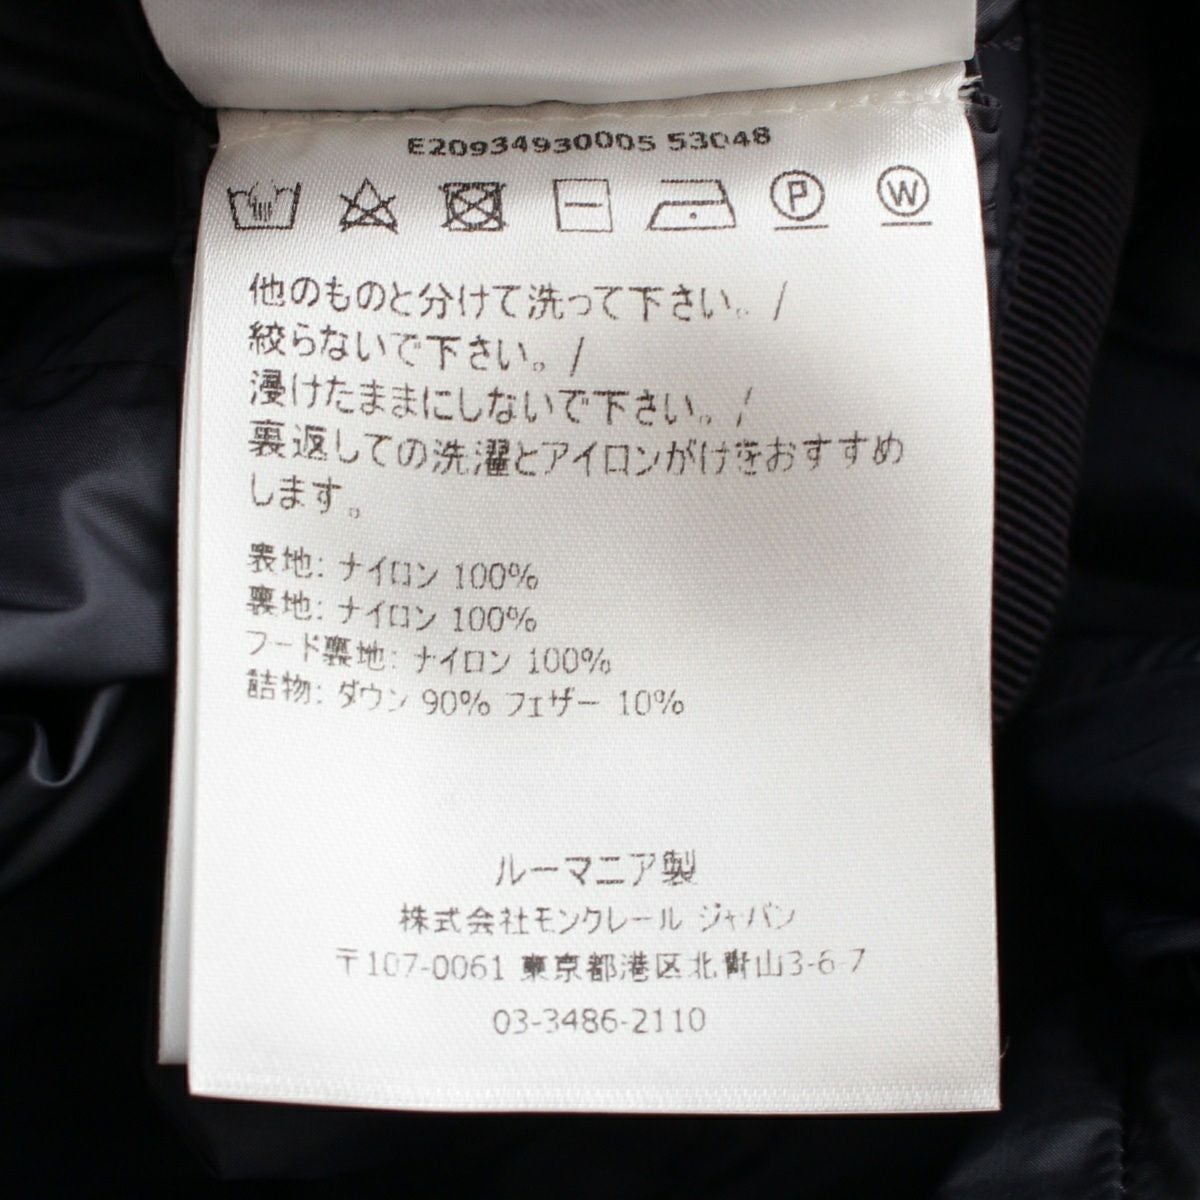 E20934930005 53048
P W
他のものと分けて洗って下さい。/
絞らないで下さい。/
浸けたままにしないで下さい。/
裏返しての洗濯とアイロンがけをおすすめ
します。
表地: ナイロン 100%
裏地: ナイロン 100%
フード裏地: ナイロン 100%
詰物: ダウン 90% フェザー 10%
ルーマニア製
株式会社モンクレール ジャパン
〒107-0061 東京都港区北青山3-6-7
03-3486-2110